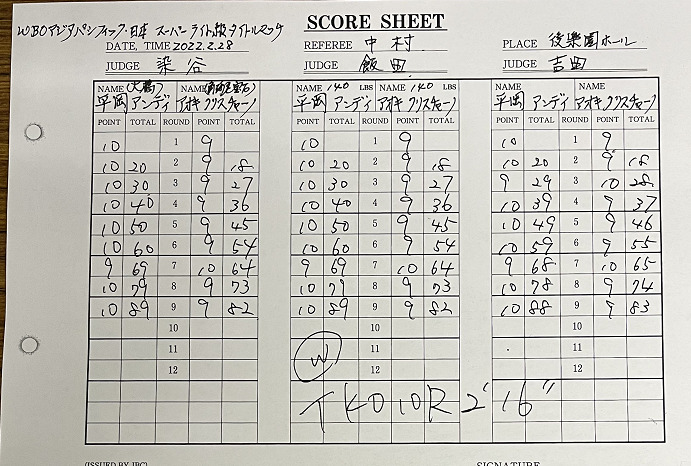 WBOアジアパシフィック・日本 スーパーライト級タイトルマッチ
SCORE SHEET
DATE, TIME 2022.2.28 REFEREE 中村 PLACE 後楽園ホール
JUDGE 染谷 JUDGE 飯田 JUDGE 吉田
NAME (大橋) NAME NAME 140 LBS NAME 140 LBS NAME NAME
平岡 アンディ アオキ クリスチャーノ 平岡 アンディ アオキ クリスチャーノ 平岡 アンディ アオキ クリスチャーノ
POINT TOTAL ROUND POINT TOTAL POINT TOTAL ROUND POINT TOTAL POINT TOTAL ROUND POINT TOTAL
10 1 9 10 1 9 10 1 9
10 20 2 9 18 10 20 2 9 18 10 20 2 9 18
10 30 3 9 27 10 30 3 9 27 9 29 3 10 28
10 40 4 9 36 10 40 4 9 36 10 39 4 9 37
10 50 5 9 45 10 50 5 9 45 10 49 5 9 46
10 60 6 9 54 10 60 6 9 54 10 59 6 9 55
9 69 7 10 64 9 69 7 10 64 9 68 7 10 65
10 79 8 9 73 10 79 8 9 73 10 78 8 9 74
10 89 9 9 82 10 89 9 9 82 10 88 9 9 83
10 10 10
11 W 11 11
12 12 12
TKO 10R 2'16"
(ISSUED BY JBC) SIGNATURE